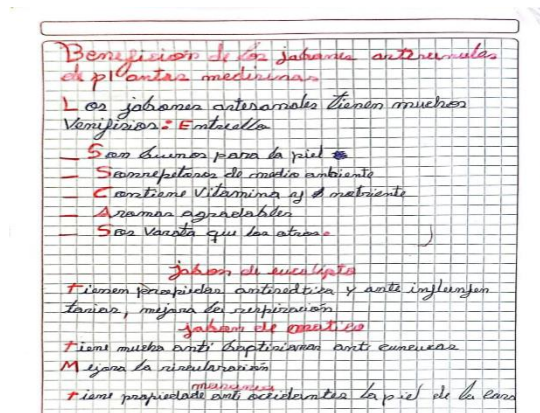 Beneficios de los jabones artesanales
de plantas medicinas
Los jabones artesanales tienen muchos
Venificios: Entre ello
_ Son buenos para la piel
_ Son respetaros de medio ambiente
_ Contiene Vitamina y nutriente
_ Aromas agradables
_ Son Varata que los otros.
jabon de eucalipto
Tienen propiedas antiseptica y ante inflanjen
torias, mejora la respiración
jabon de matico
Tiene mucha anti
Mejora la circularación
manzanea
Tiene propiedade anti occidantes la piel de la cara